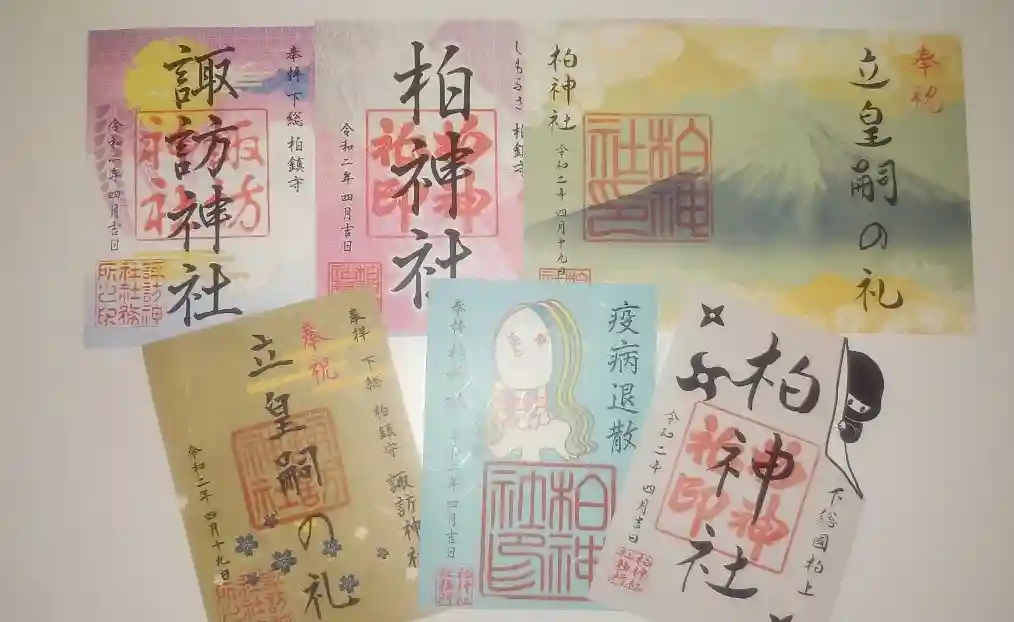 奉拝 下総 柏鎮守
諏訪神社
令和二年 四月吉日
諏訪神
社社務
所之印
柏鎮守
柏神社
令和二年 四月吉日
奉祝
立皇嗣の礼
柏神社
令和二年 四月十九日
柏神
社印
奉拝 下総 柏鎮守
諏訪神社
奉祝
立皇嗣の礼
令和二年 四月十九日
疫病退散
奉拝 柏神社
四月吉日
柏神
社印
下総国柏上
柏神社
令和二年 四月吉日